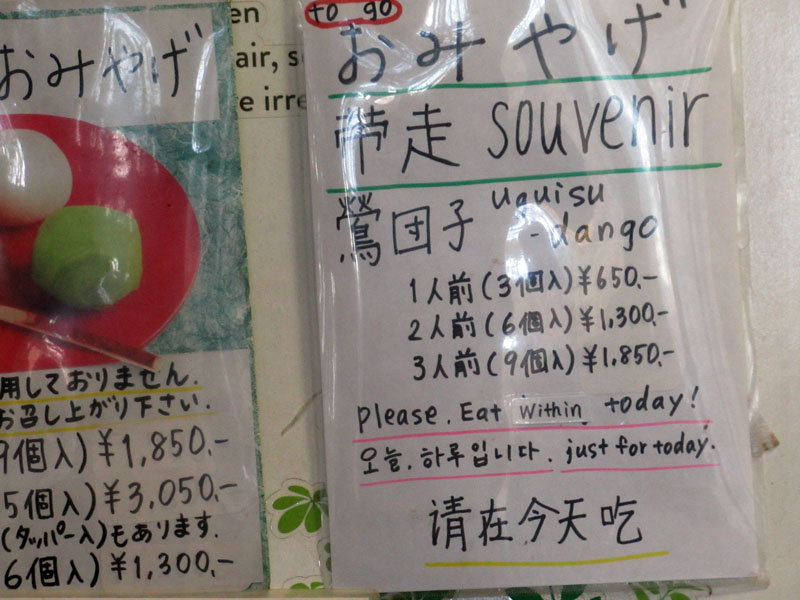 おみやげ
用しておりません.
お召し上がり下さい.
9個入)¥1,850.-
5個入)¥3,050.-
(タッパー入)もあります.
6個入)¥1,300.-
en
air, s
e irre
to go
おみやげ
帯走 souvenir
鶯団子 uguisu
-dango
1人前(3個入)¥650.-
2人前(6個入)¥1,300.-
3人前(9個入)¥1,850.-
please. Eat within today!
오늘. 하루입니다. just for today.
请在今天吃